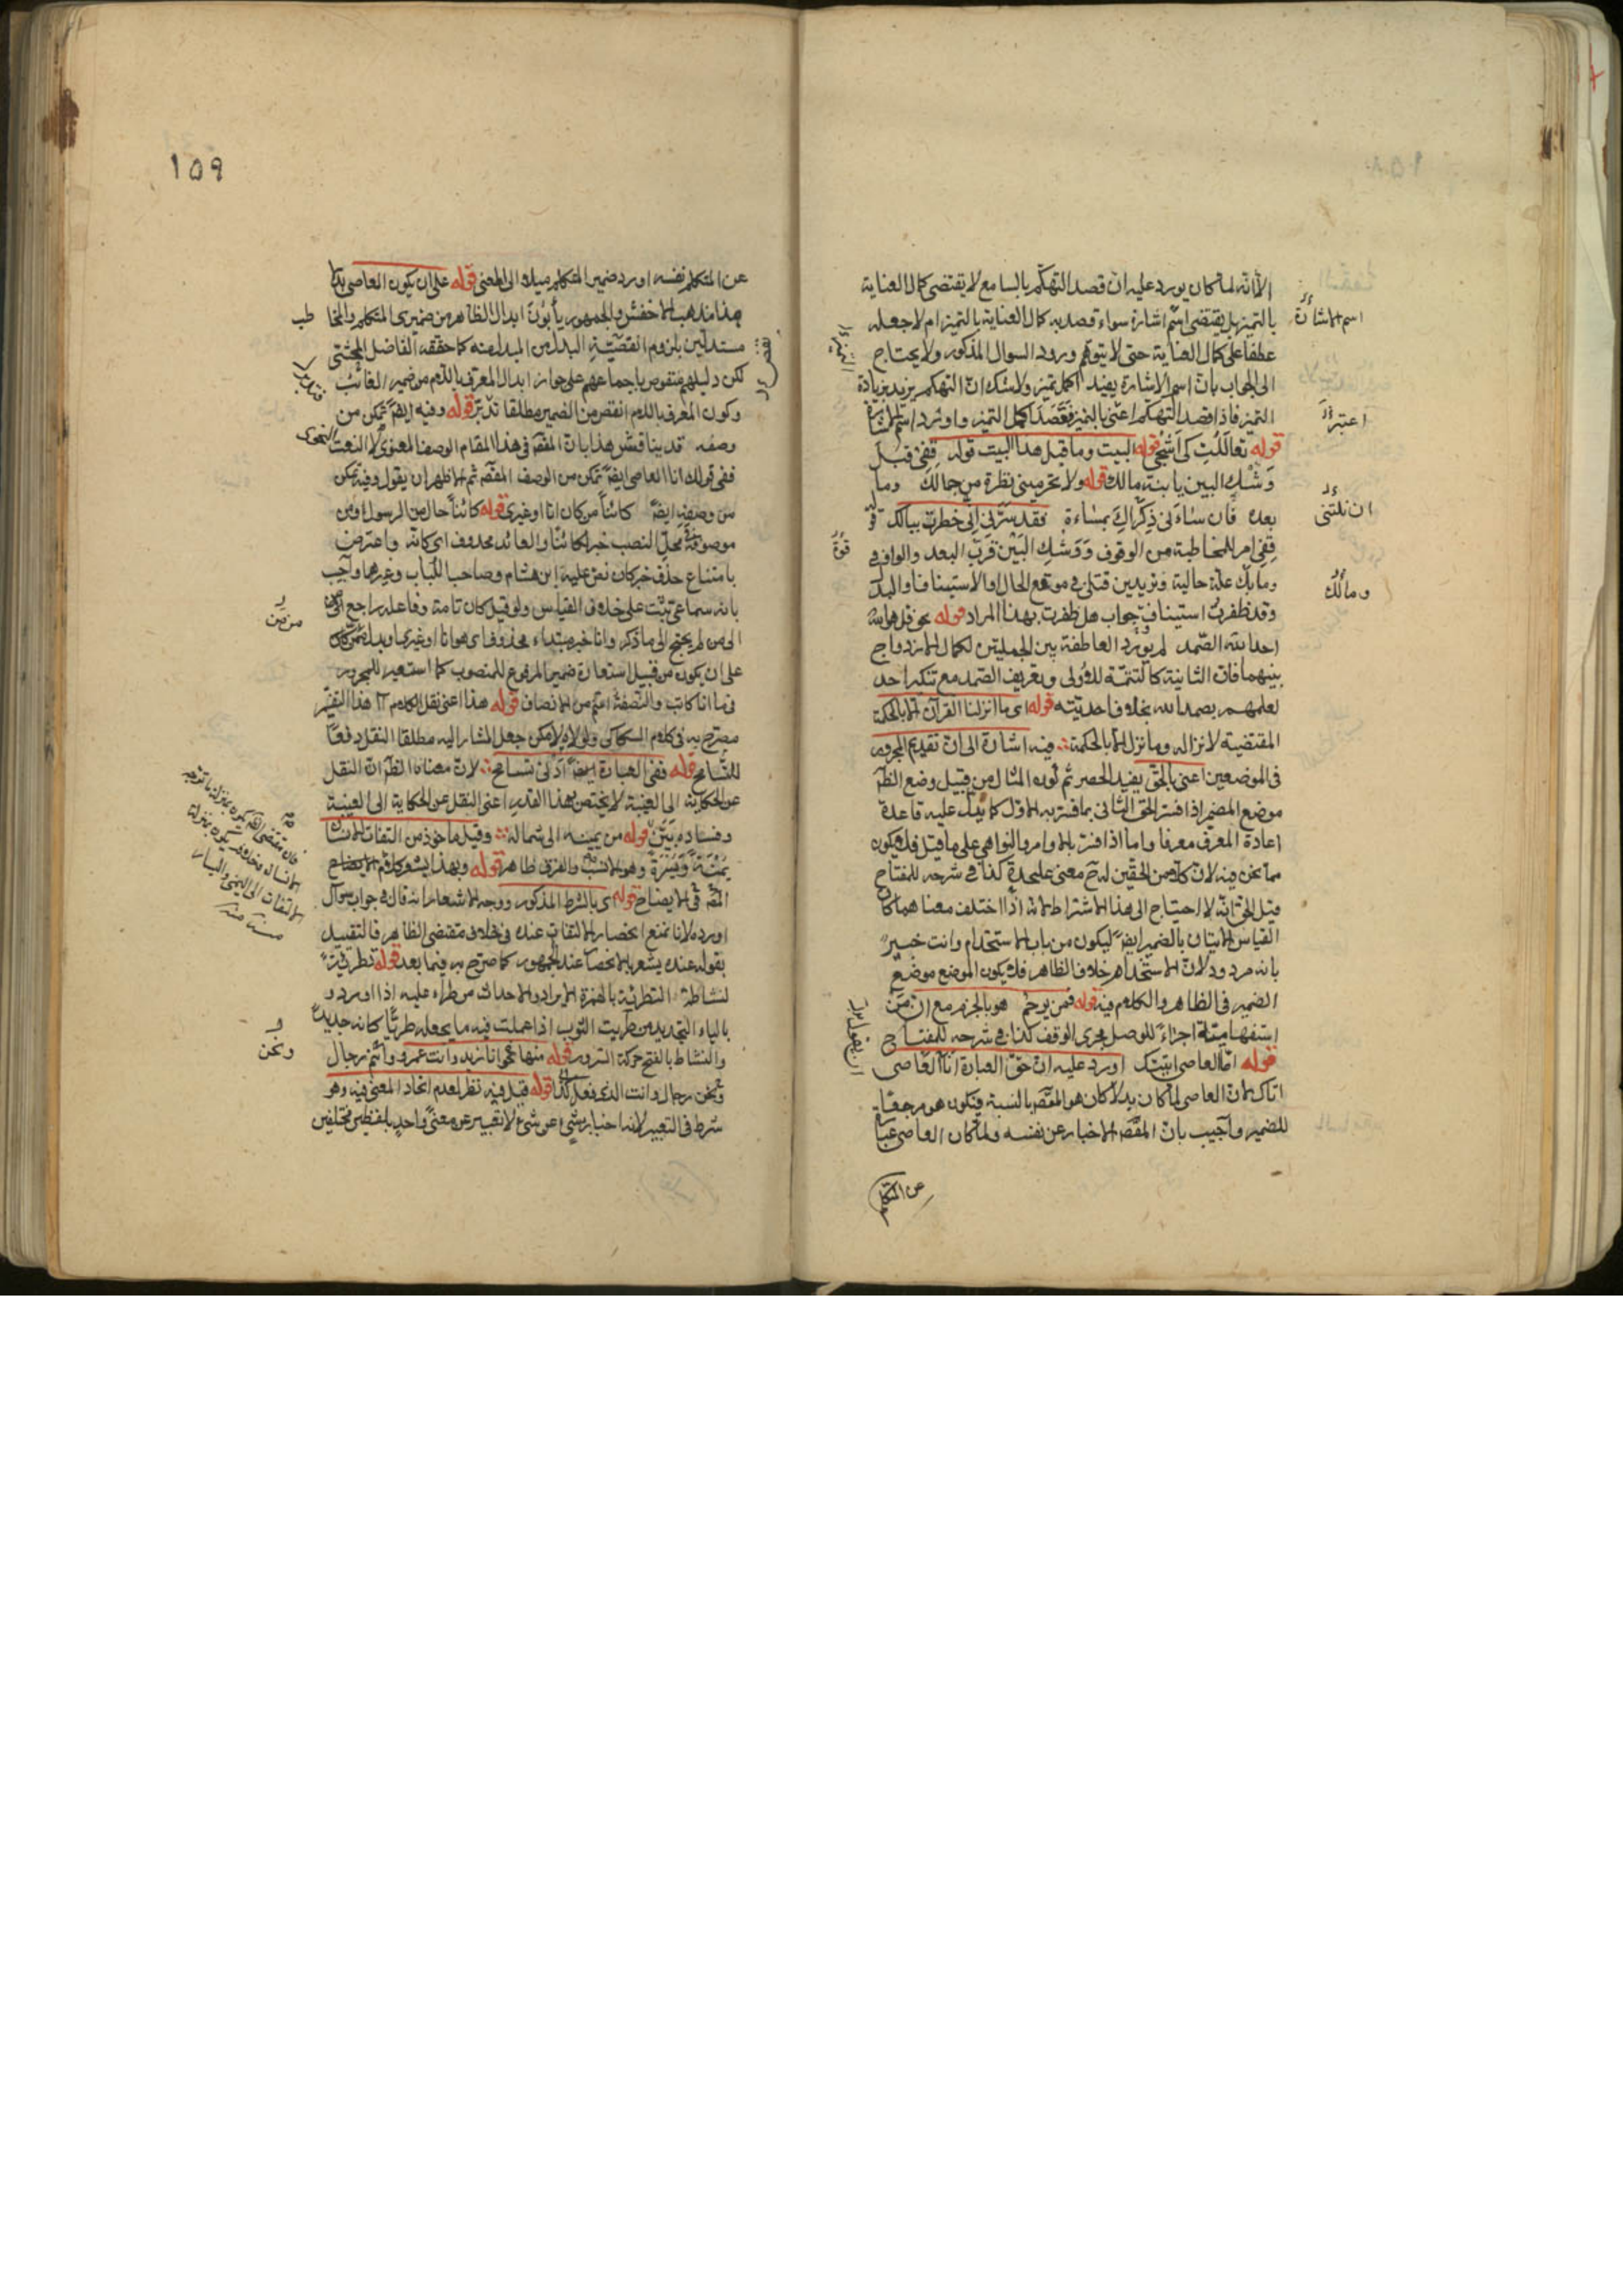 الا انه لما كان يورد عليه ان قصد التهكم بالسامع لا يقتضى كمال العناية
بالتميز بل يقتضى اسم اشارة سواء قصد به كمال العناية بالتميز ام لا جعله
عطفا على كمال العناية حتى لا يتوهم ورود السوال المذكور ولا يحتاج
الى الجواب بان اسم الاشارة يفيد اكمل تميز ولا شك ان التهكم يزيد بزيادة
التميز فاذا قصد التهكم اعنى بالتميز فقصد اكمل التميز واورد اسم الاشارة
قوله تعاللت كى اشجى قوله البيت وما قبل هذا البيت قوله قفى قبل
وشك البين يا بنة مالك قوله ولا تحرمينى نظرة من جمالك وما
بعده فان ساءنى ذكراك بمساءة فقد سرنى انى خطرت ببالك
قفى امر للمخاطبة من الوقوف ووشك البين قرب البعد والواو فى
وما بك علة حالية وتريدين قتلى فى موقع الحال او الاستيناف او البدل
وقد ظفرت استيناف جواب هل ظفرت بهذا المراد قوله نحو قل هو الله
احد الله الصمد لم يورد العاطفة بين الجملتين لكمال الازدواج
بينهما فان الثانية كالتتمة للاولى وتعريف الصمد مع تنكير احد
لعلمهم بصمد الله بخلاف احديته قوله اى ما انزلنا القرآن الا بالحكمة
المقتضية لانزاله وما نزل الا بالحكمة فيه اشارة الى ان تقديم المجرور
فى الموضعين اعنى بالحق يفيد الحصر ثم كون المثال من قبيل وضع الظاهر
موضع المضمر اذا فسر الحق الثانى بما فسر به الاول كما يدل عليه قاعدة
اعادة المعرف معرفا واما اذا فسر بالاوامر والنواهى على ما قيل فلا يكون
مما نحن فيه لان كلا من الحقين له ح معنى عليحدة كذا فى شرحه للمفتاح
قيل الحق انه لا احتياج الى هذا الاشتراط لانه اذا اختلف معناهما كان
القياس الاتيان بالضمير ايضا ليكون من باب الاستخدام وانت خبير
بانه مردود لان الاستخدام خلاف الظاهر فلا يكون الموضع موضع
الضمير فى الظاهر والكلام فيه قوله فمن يرحم هو بالجزم مع ان من
استفهامية اجراء للوصل مجرى الوقف كذا فى شرحه للمفتاح
قوله انا العاصى اتيتك اورد عليه ان حق العبارة انا العاصى
اتاك لان العاصى لما كان بدلا كان هو المقصود بالنسبة فيكون هو مرجعا
للضمير واجيب بان المقصد الاخبار عن نفسه ولما كان العاصى عبارة
عن المتكلم
اسم الاشارة
اعتبر
ومالك
١٥٩
عن المتكلم نفسه اورد ضمير المتكلم ميلا الى المعنى قوله على ان يكون العاصى بدلا
هذا مذهب الاخفش والجمهور يأبون ابدال الظاهر من ضميرى المتكلم والمخا طب
مستدلين بلزوم انقصية البدل من المبدل منه كما حققه الفاضل المحشى
لكن دليلهم منقوض باجماعهم على جواز ابدال المعرف باللام من ضمير الغائب
وكون المعرف باللام انقص من الضمير مطلقا تدبر قوله وفيه ايضا تمكن من
وصفه قد يناقش هذا بان المقصد فى هذا المقام الوصف المعنوى لا النعت النحوى
ففى قولك انا العاصى ايضا تمكن من الوصف المقصد ثم الاظهر ان يقول وفيه تمكن
من وصفه ايضا كائنا من كان انا او غيرى قوله كائنا حال من الرسول او من
موصوفة محل النصب خبر لكائنا والعائد محذوف اى كانه واعترض
بامتناع حذف خبر كان نص عليه ابن هشام وصاحب اللباب وغيرهما واجيب
بانه سماعى يثبت على خلاف القياس ولو قيل كان تامة وفاعله راجع الى
الى من لم يحتج الى ما ذكر وانا خبر مبتداء محذوف اى هو انا او غيرى او بدل
على ان يكون من قبيل استعارة ضمير المرفوع للمنصوب كما استعير للمجرور
فى ما انا كانت والنصفة اسم من الانصاف قوله هذا اعنى نقل الكلام
مصرح به فى كلام السكاكى ولولاه لامكن جعل المشار اليه مطلقا النقل دفعا
للتسامح قوله ففى العبارة ايضا ادنى تسامح لان معناه الظاهر ان النقل
عن الحكاية الى الغيبة لا يختص بهذا القدر اعنى النقل عن الحكاية الى الغيبة
وفساده بين قوله من يمينه الى شماله وقيل ماخوذ من التفات الانسان
يمنة ويسرة وهو الانسب والفرق ظاهر قوله وبهذا يشعر كلام
المص فى الايضاح قوله اى بالشرط المذكور ووجه الاشعار انه قال فى جواب سوال
اورده لانا نمنع انحصار الالتفات عنده فى خلاف مقتضى الظاهر فالتقييد
بقوله عنده يشعر بالانحصار عند الجمهور كما صرح به فيما بعد قوله تطرئية
لنشاطه التطرئية بالهمزة الايراد والاحداث من طراء عليه اذا اورد و
بالياء التجديد من طريت الثوب اذا عملت فيه ما يجعله طريا كانه جديد
والنشاط بالفتح حركة السرور قوله منها نحو انا زيد وانت عمرو وانتم رجال
ونحن رجال وانت الذى فعل كذا قوله قيل فيه نظر لعدم اتحاد المعنى فيه وهو
شرط فى التعبير لانه اخبار بشئ عن شئ لا تعبير عن معنى واحد بلفظين مختلفين
ونحن